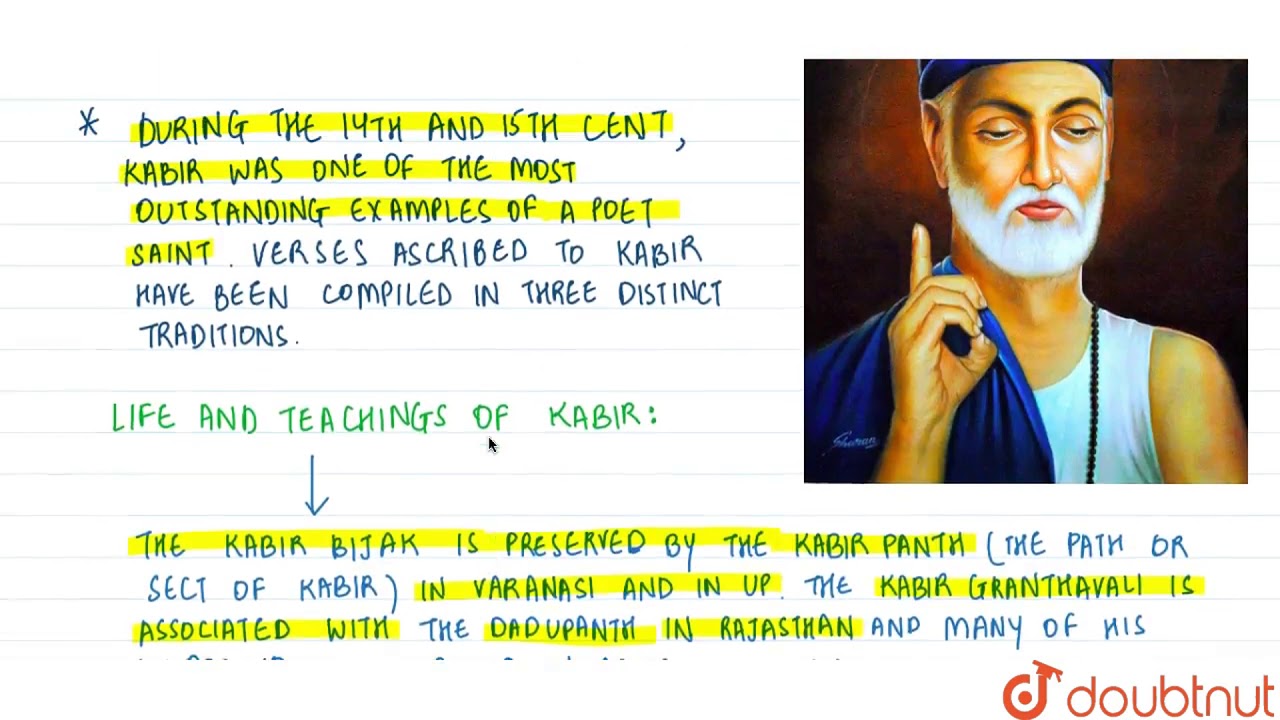 * DURING THE 14TH AND 15TH CENT,
KABIR WAS ONE OF THE MOST
OUTSTANDING EXAMPLES OF A POET
SAINT. VERSES ASCRIBED TO KABIR
HAVE BEEN COMPILED IN THREE DISTINCT
TRADITIONS.
Sharan
LIFE AND TEACHINGS OF KABIR:
THE KABIR BIJAK IS PRESERVED BY THE KABIR PANTH (THE PATH OR
SECT OF KABIR) IN VARANASI AND IN UP. THE KABIR GRANTHAVALI IS
ASSOCIATED WITH THE DADUPANTH IN RAJASTHAN AND MANY OF HIS
doubtnut